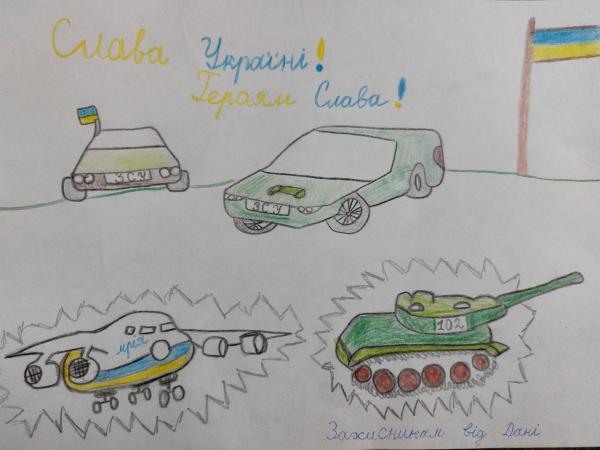 Слава Україні!
Гераям Слава!
ЗСУ
ЗСУ
мрія
102
Захисникам від Дані